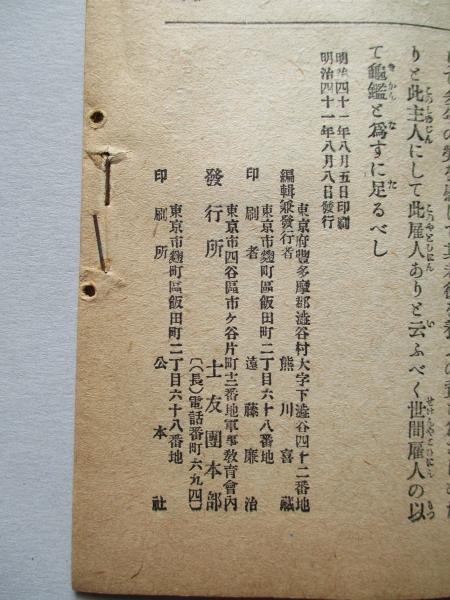 りと此主人にして此雇人ありと云ふべく世間雇人の以
て龜鑑と爲すに足るべし
明治四十一年八月五日印刷
明治四十一年八月八日發行
東京府豐多摩郡澁谷村大字下澁谷四十二番地
編輯兼發行者 熊川喜藏
東京市麴町區飯田町二丁目六十八番地
印刷者 遠藤廉治
東京市四谷區市ヶ谷片町十三番地軍事敎育會內
發行所 士友團本部
〔(長)電話番町六九四〕
東京市麴町區飯田町二丁目六十八番地
印刷所 公木社